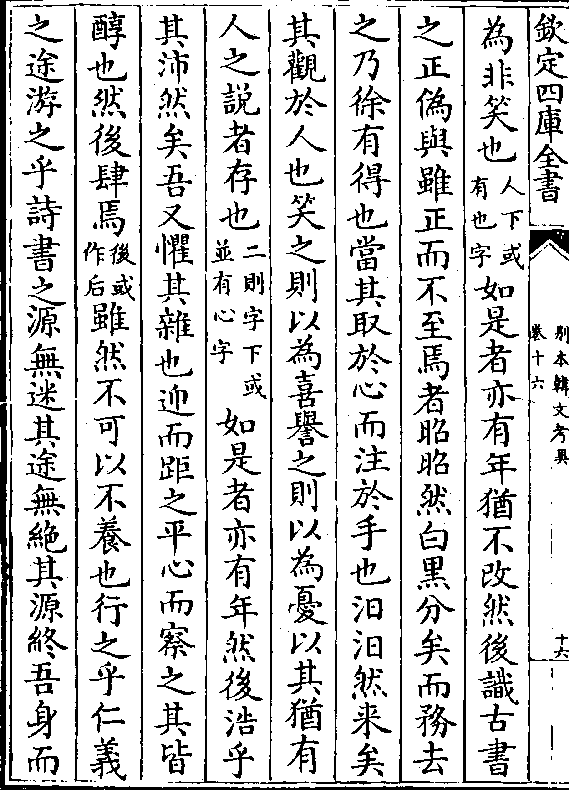 欽定四庫全書
别本韓文考異
卷十六
十六
為非笑也人下或有也字如是者亦有年猶不改然後識古書
之正偽與雖正而不至焉者昭昭然白黒分矣而務去
之乃徐有得也當其取於心而注於手也汩汩然来矣
其觀於人也笑之則以為喜譽之則以為憂以其猶有
人之説者存也二則字下或並有心字如是者亦有年然後浩乎
其沛然矣吾又懼其雜也迎而距之平心而察之其皆
醇也然後肆焉後或作后雖然不可以不養也行之乎仁義
之途游之乎詩書之源無迷其途無絶其源終吾身而